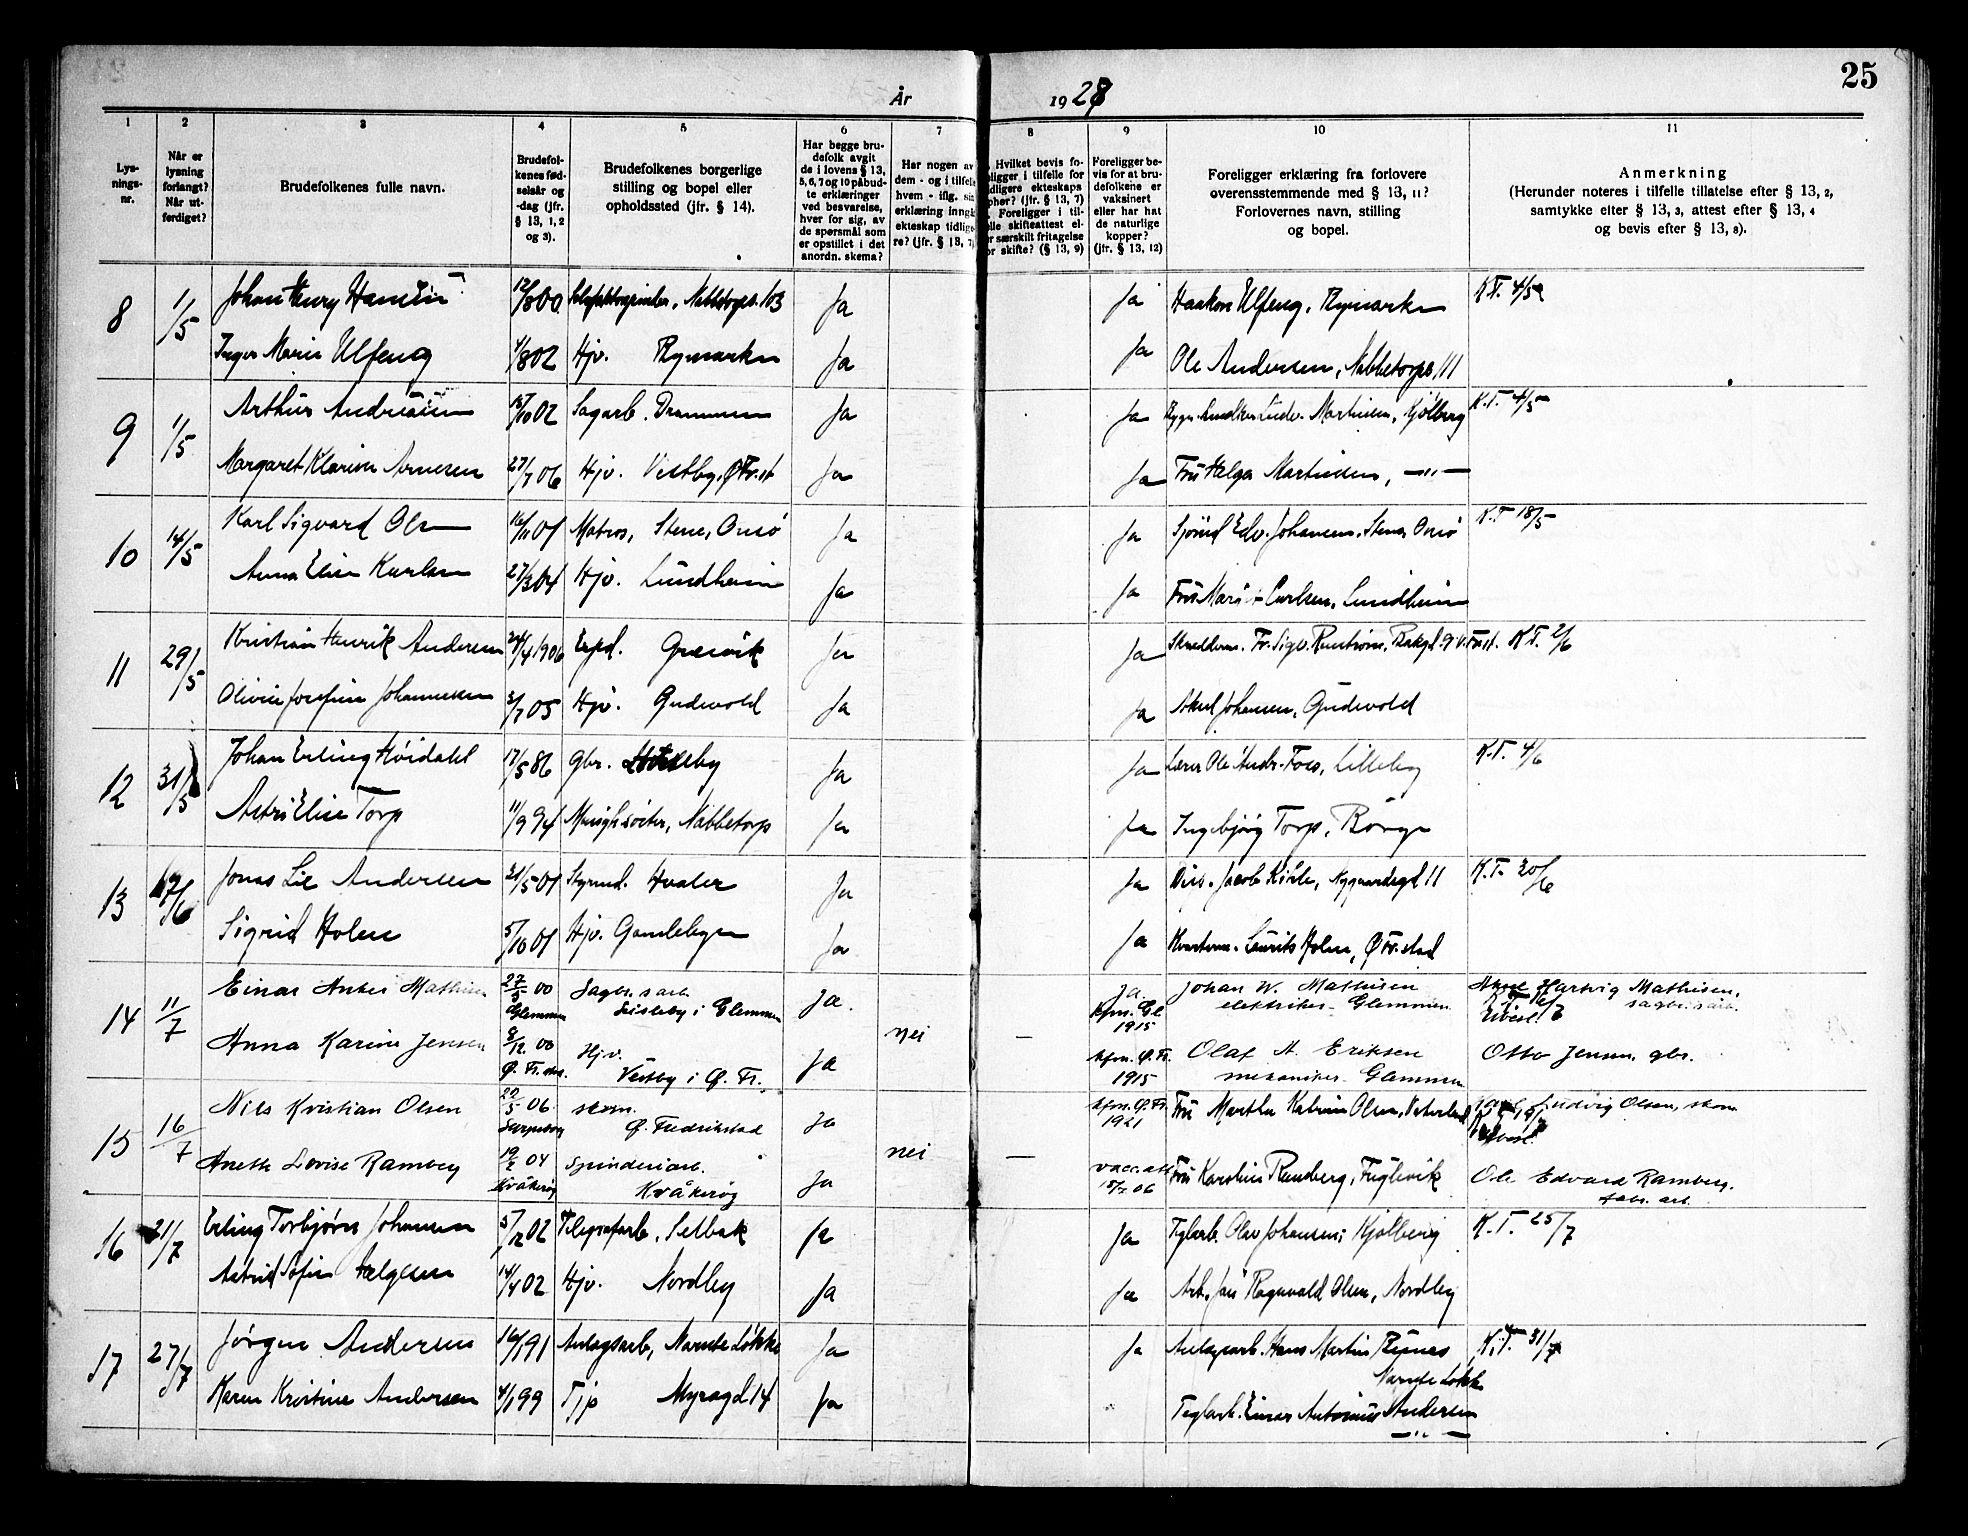 25
År 1928
1
2
3
4
5
6
7
8
9
10
11
Lys-
nings-
nr.
Når er
lysning
forlangt?
Når ut-
ferdiget?
Brudefolkenes fulle navn.
Brudefol-
kenes fød-
selsår og
-dag (jfr.
§ 13, 1, 2
og 3).
Brudefolkenes borgerlige
stilling og bopel eller
opholdssted (jfr. § 14).
Har begge bru-
defolk avgit
de i lovens § 13,
5, 6, 7 og 10 påbud-
te erklæringer
ved besvarelse,
hver for sig, av
de spørsmål som
er opstillet i det
anordn. skema?
Har nogen av
dem - og i tilfelle
hvem - iflg. sin
erklæring inngått
ekteskap tidlige-
re? (jfr. § 13, 7)
Hvilket bevis fo-
religger i tilfelle for
tidligere ekteskaps
ophør? (jfr. § 13, 7)
Foreligger i til-
felle skifteattest el-
ler særskilt fritagelse
for skifte? (§ 13, 9)
Foreligger be-
vis for at bru-
defolkene er
vaksinert
eller har hat
de naturlige
kopper?
(jfr. § 13, 12)
Foreligger erklæring fra forlovere
overensstemmende med § 13, 11?
Forlovernes navn, stilling
og bopel.
Anmerkning
(Herunder noteres i tilfelle tillatelse efter § 13, 2,
samtykke efter § 13, 3, attest efter § 13, 4
og bevis efter § 13, 8).
8 1/5 Johan Henry Hansen 12/8 00 Nabbetorpv. 103 Ja Ja Haakon Ulfeng, Rymarken K.T. 4/5
Inger Marie Ulfeng 4/8 02 Hjv. Rymarken Ja Ja Ole Andersen, Nabbetorpv. 111
9 1/5 Arthur Andreassen 15/10 02 Sagarb. Drammen Ja Ja Martinsen, Kjölberg K.T. 4/5
Margaret Klarisa Arnesen 27/7 06 Hjv. Vestby, Ø Fr.st Ja Ja Fru Helga Martinsen, —"—
10 14/5 Karl Sigvard Olsen 16/11 01 Matros, Stene, Onsö Ja Ja Sjömd Edv. Johansen, Stene, Onsö K.T. 18/5
Anna Elise Karlsen 27/3 04 Hjv. Lundheim Ja Ja Fru Marie Carlsen, Lundheim
11 29/5 Kristian Henrik Andersen 24/4 1906 Exped. Gresvik Ja Ja Skredderm. Fr. Sigv. K.T. 2/6
Olivie Josefine Johannesen 3/7 05 Hjv. Gudevold Ja Ja Johansen, Gudevold
12 31/5 Johan Erling Höidahl 17/5 86 Gbr. Ja Ja Lærer Ole Andr. Foss, Lilleby K.T. 4/6
Astri Elise Torp 11/9 94 Nabbetorp Ja Ja Ingebjörg Torp, Borge
13 Jonas Lie Andersen 21/5 01 Styrmd. Hvaler Ja Ja Disp. Jacob Nygaardsgd 11 K.T. 20/6
Sigrid Holen 5/10 01 Hjv. Gamlebyen Ja Ja Laurits Holen, Ø Fr.stad
14 11/7 Einar Anker Mathisen 27/5 00 Sagbr.s arb. Ja. Ja. Johan W. Mathisen Hartvig Mathisen,
Glemmen Lisleby i Glemmen kfm. Gl. elektriker - Glemmen sagbr.s arb.
1915
Anna Karine Jensen 8/12 00 Hjv. Ja nei — kfm. Ø. Fr. Olaf A. Eriksen Otto Jensen, gbr.
Ø. Fr.stad. Vestby i Ø. Fr. 1915 mekaniker - Glemmen
15 16/7 Nils Kristian Olsen 22/5 06 skom. Ja kfm. Ø. Fr. Fru Martha Katrine Olsen, Ludvig Olsen, skom
Sarpsborg Ø. Fredrikstad 1921
Anette Lovise Ramberg 19/2 04 Spinderiarb. Ja nei — vacc. att Fru Karoline Rundberg, Fuglevik Ole Edvard Ramberg,
Kråkerøy Kråkerøy 15/7 06 fabr. arb.
16 21/7 Erling Torbjörn Johansen 5/12 02 Telegrafarb. Selbak Ja Ja Teglarb. Olav Johansen, Kjölberg K.T. 25/7
Astrid Sofie Helgesen 14/4 02 Hjv. Nordby Ja Ja Arb. Ragnvald Olsen, Nordby
17 27/7 Jörgen Andersen 16/1 91 Anlegsarb, Narnte Løkke Ja Ja Anlegsarb. Hans Martin K.T. 31/7
Narnte Løkk
Karen Kristine Andersen 4/1 99 Tjp Myragd 14 Ja Teglarb. Einar Antonius Andersen
—"—